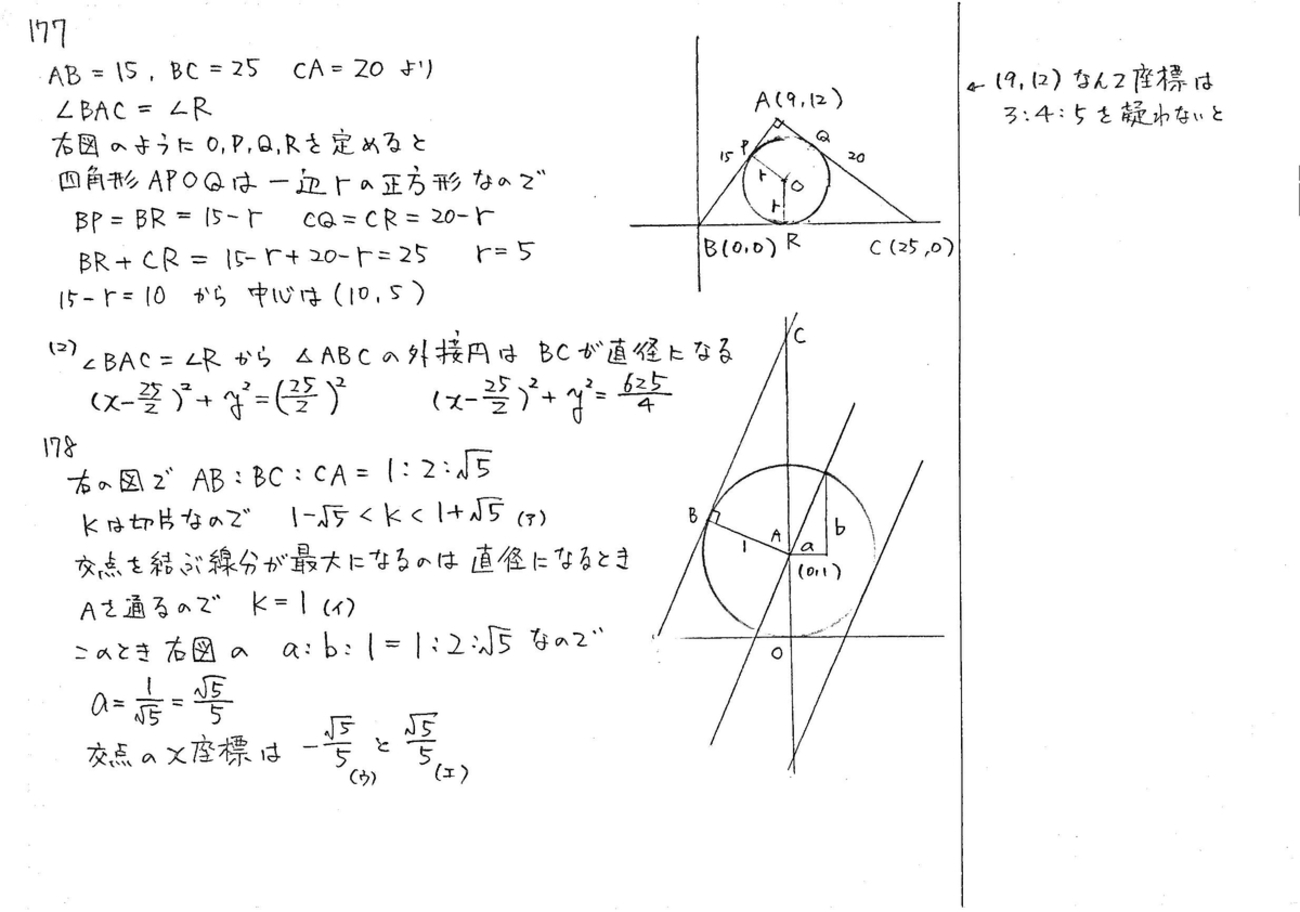 177
AB = 15, BC = 25 CA = 20 より
∠BAC = ∠R
右図のように O,P,Q,Rを定めると
四角形 APOQは 一辺rの正方形なので
BP = BR = 15-r CQ = CR = 20-r
BR + CR = 15-r+20-r=25 r=5
15-r=10 から 中心は (10,5)
(2) ∠BAC = ∠R から △ABCの外接円は BCが直径になる
(x-25/2)²+ y²=(25/2)² (x-25/2)²+ y²= 625/4
A(9,12)
P
Q
15
20
r
O
r
B(0,0) R
C(25,0)
← (9,12) なんて座標は
3:4:5を疑わないと
178
右の図で AB:BC:CA = 1:2:√5
Kは切片なので 1-√5 < k < 1+√5 (ア)
交点を結ぶ線分が最大になるのは 直径になるとき
Aを通るので K = 1 (イ)
このとき 右図の a:b:1=1:2:√5 なので
a= 1/√5 = √5/5
交点のx座標は -√5/5 (ウ) と √5/5 (エ)
C
B
A
1
a
b
(0,1)
O